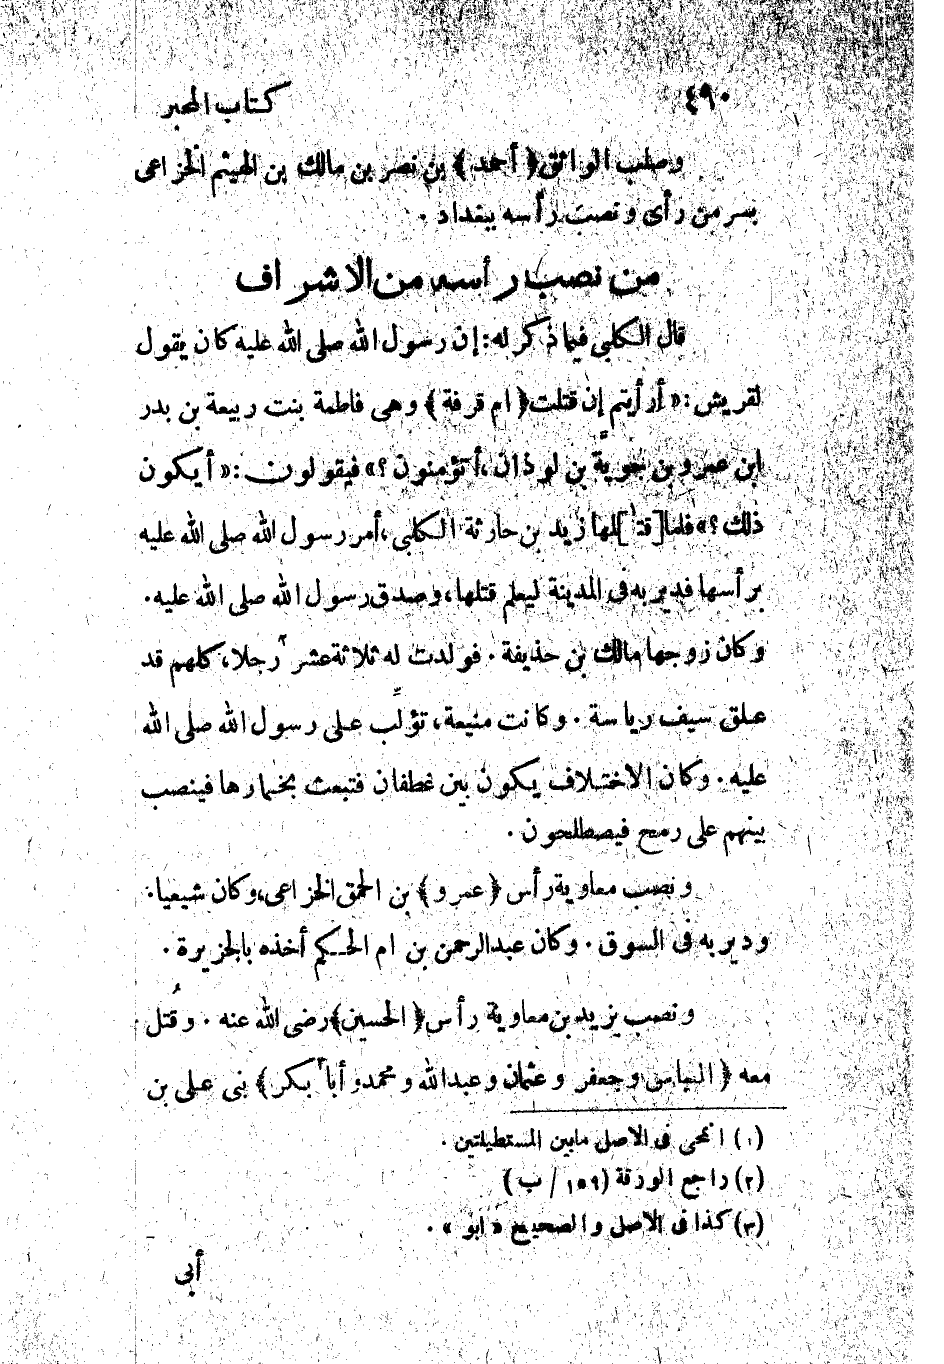 ٤٩٠ كتاب المحبر
وصلب الواثق ﴿ أحمد ﴾ بن نصر بن مالك بن الهيثم الخزاعى
بسر من رأى و نصب رأسه ببغداد .
من نصب رأسه من الاشراف
قال الكلبي فيما ذكر له: إن رسول الله صلى الله عليه كان يقول
لقريش: « أرأيتم إن قتلت ﴿ ام قرفة ﴾ وهى فاطمة بنت ربيعة بن بدر
ابن عمرو بن جويّة بن لوذان، أتؤمنون؟ » فيقولون: « أيكون
ذلك؟ » فلما [قتـ١]لها زيد بن حارثة الكلبي، أمر رسول الله صلى الله عليه
برأسها فدير به فى المدينة ليعلم قتلها، و صدق رسول الله صلى الله عليه.
وكان زوجها مالك بن حذيفة . فولدت له ثلاثة عشر٢ رجلا، كلهم قد
علق سيف رياسة . وكانت منيعة، تؤلّب على رسول الله صلى الله
عليه . وكان الاختلاف يكون بين غطفان فتبعث بخمارها فينصب
بينهم على رمح فيصطلحون .
و نصب معاوية رأس ﴿ عمرو ﴾ بن الحمق الخزاعى، وكان شيعيا .
و دير به فى السوق . وكان عبدالرحمن بن ام الحكم أخذه بالجزيرة .
و نصب يزيد بن معاوية رأس ﴿ الحسين ﴾ رضى الله عنه . و قُتل
معه ﴿ العباس و جعفر و عثمان و عبدالله و محمد و أبا٣ بكر ﴾ بنى على بن
(١) انمحى فى الاصل مابين المستطيلتين .
(٢) راجع الورقة (١٥٩ / ب)
(٣) كذا فى الاصل و الصحيح « ابو » .
أبى